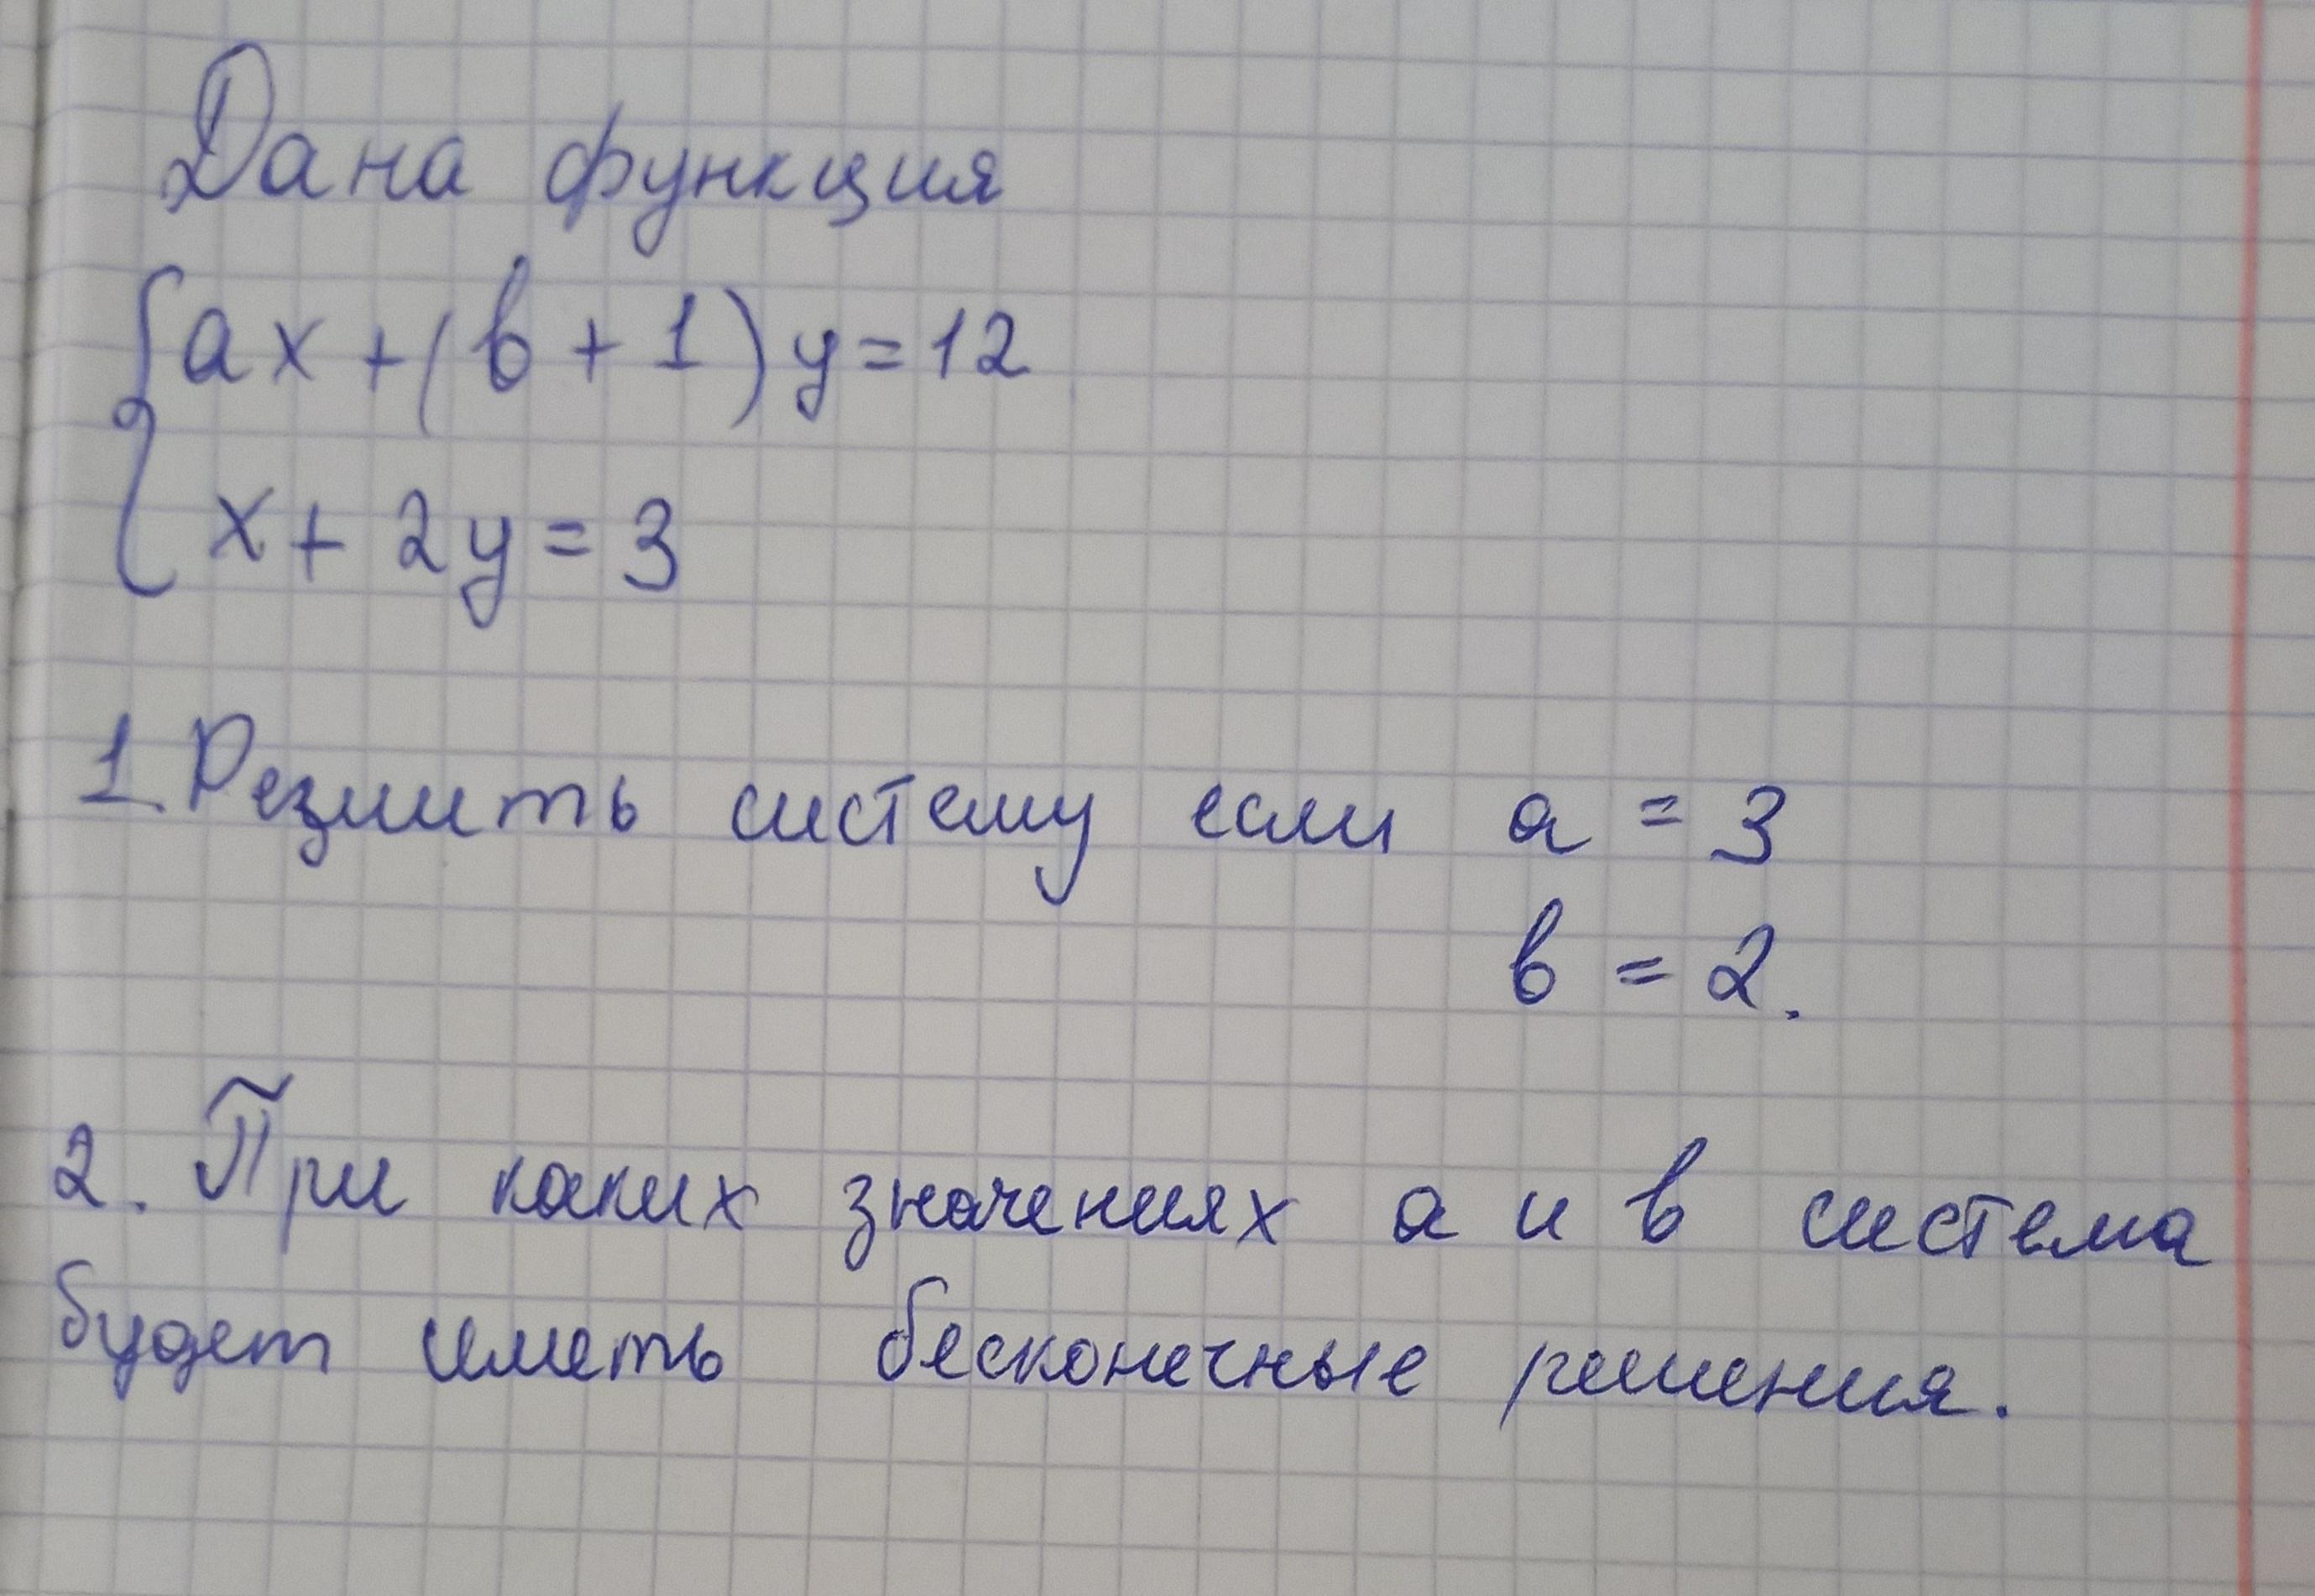 Дана функция
{ax + (в + 1) y = 12
x + 2y = 3
1. Резшить систему если а = 3
в = 2.
2. При каких значениях а и в система
будет иметь бесконечные решения.